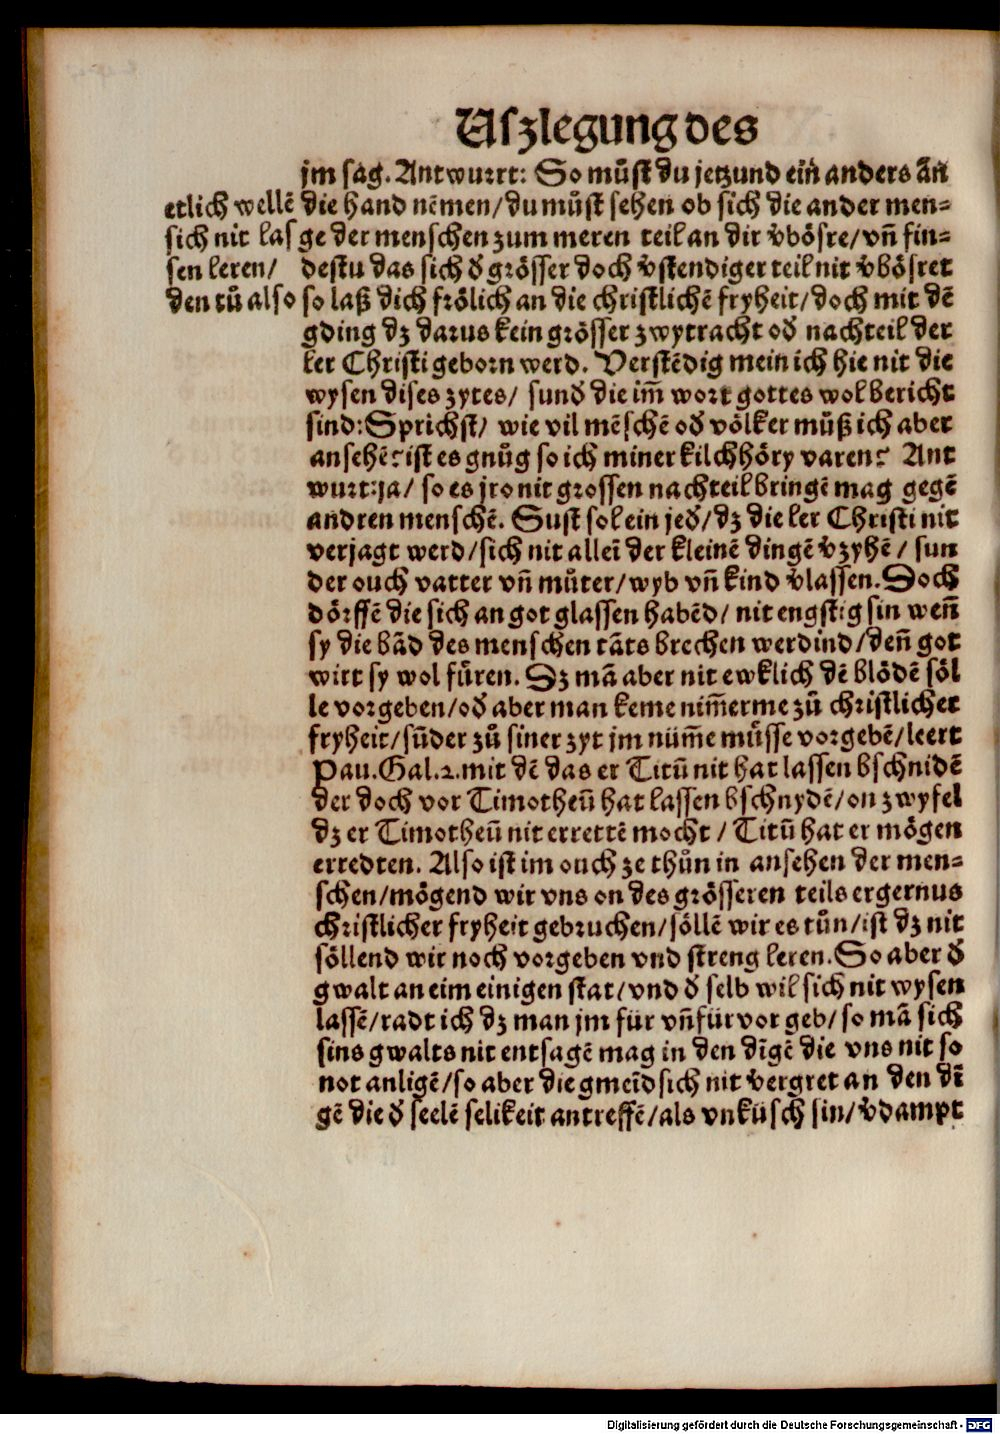 Uſzlegung des
jm ſag. Antwurrt: So můſt du jetzund ein anders an
die hand nēmen/ du můſt ſehen ob ſich die ander men⸗
ge der menſchen zum meren teil an dir v̄böſre/ vn̄ fin⸗
deſtu das ſich d̄ gröſſer doch v̄ſtendiger teil nit v̄böſret
ſo laß dich frölich an die chriſtlichē fryheit/ doch mit dē
gding dz darus kein gröſſer zwytracht od̄ nachteil der
ler Chriſti geborn werd. Verſtēdig mein ich hie nit die
wyſen diſes zytes/ ſund̄ die im̄ wort gottes wol bericht
ſind: Sprichſt/ wie vil mēſchē od̄ völker můß ich aber
anſehē? iſt es gnůg ſo ich miner kilchhöry varen? Ant
wurt: ja/ ſo es jro nit groſſen nachteil bringē mag gegē
andren menſchē. Suſt ſol ein jed̄/ dz die ler Chriſti nit
verjagt werd/ ſich nit alleī der kleinē dingē v̄zyhē/ ſun
der ouch vatter vn̄ můter/ wyb vn̄ kind v̄laſſen. Doch
dörffē die ſich an got glaſſen habēd/ nit engſtig ſin wen̄
ſy die bād des menſchen tāts brechen werdind/ den̄ got
wirt ſy wol füren. Dz mā aber nit ewklich dē blödē ſöl
le vorgeben/ od̄ aber man keme nim̄erme zů chriſtlicher
fryheit/ ſūder zů ſiner zyt jm nüm̄e müſſe vorgebē/ leert
Pau. Gal. 2. mit dē das er Titū nit hat laſſen bſchnidē
der doch vor Timotheū hat laſſen bſchnydē/ on zwyfel
dz er Timotheū nit errettē mocht/ Titū hat er mögen
erredten. Alſo iſt im ouch ze thůn in anſehen der men⸗
ſchen/ mögend wir vns on des gröſſeren teils ergernus
chriſtlicher fryheit gebruchen/ ſöllē wir es tůn/ iſt dz nit
ſöllend wir noch vorgeben vnd ſtreng leren. So aber d̄
gwalt an eim einigen ſtat/ vnd d̄ ſelb wil ſich nit wyſen
laſſē/ radt ich dz man jm für vn̄ für vor geb/ ſo mā ſich
ſins gwalts nit entſagē mag in den dīgē die vns nit ſo
not anligē/ ſo aber die gmeīd ſich nit v̄ergret an den dī
gē die d̄ ſeelē ſelikeit antreffē/ als vnküſch ſin/ v̄dampt
etlich wellē
ſich nit laſ
ſen leren/
den tů alſo
Digitalisierung gefördert durch die Deutsche Forschungsgemeinschaft - DFG